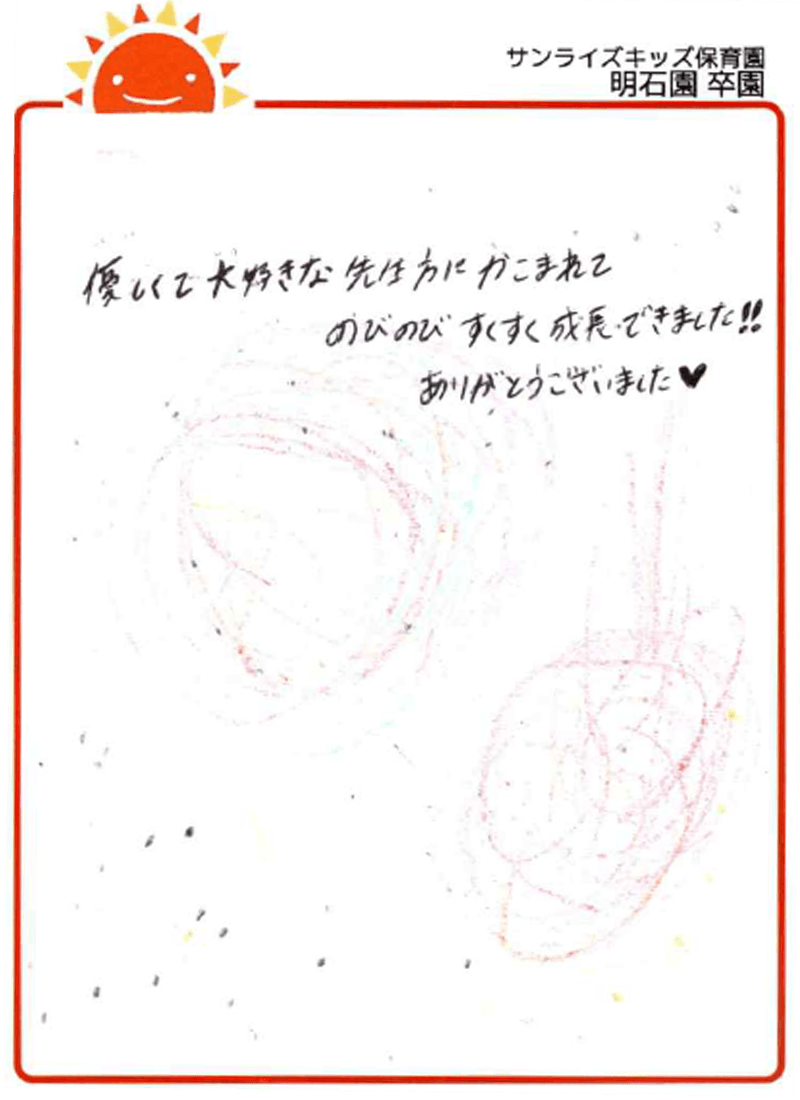 サンライズキッズ保育園
明石園 卒園
優しくて大好きな先生方にかこまれて
のびのび すくすく成長できました!!
ありがとうございました♥